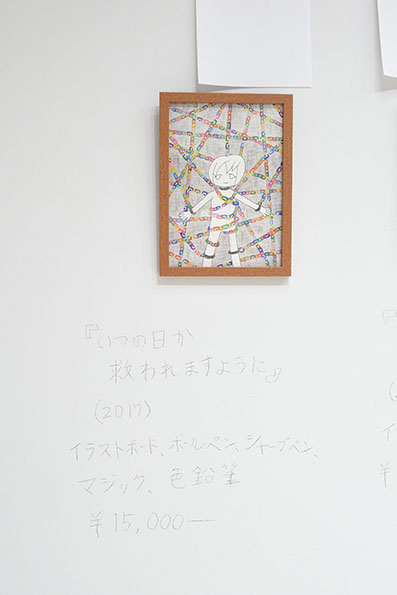 『いつの日か
救われますように』
(2017)
イラストボード、ボールペン、シャープペン、
マジック、色鉛筆
¥15,000—
『
(
イ
¥